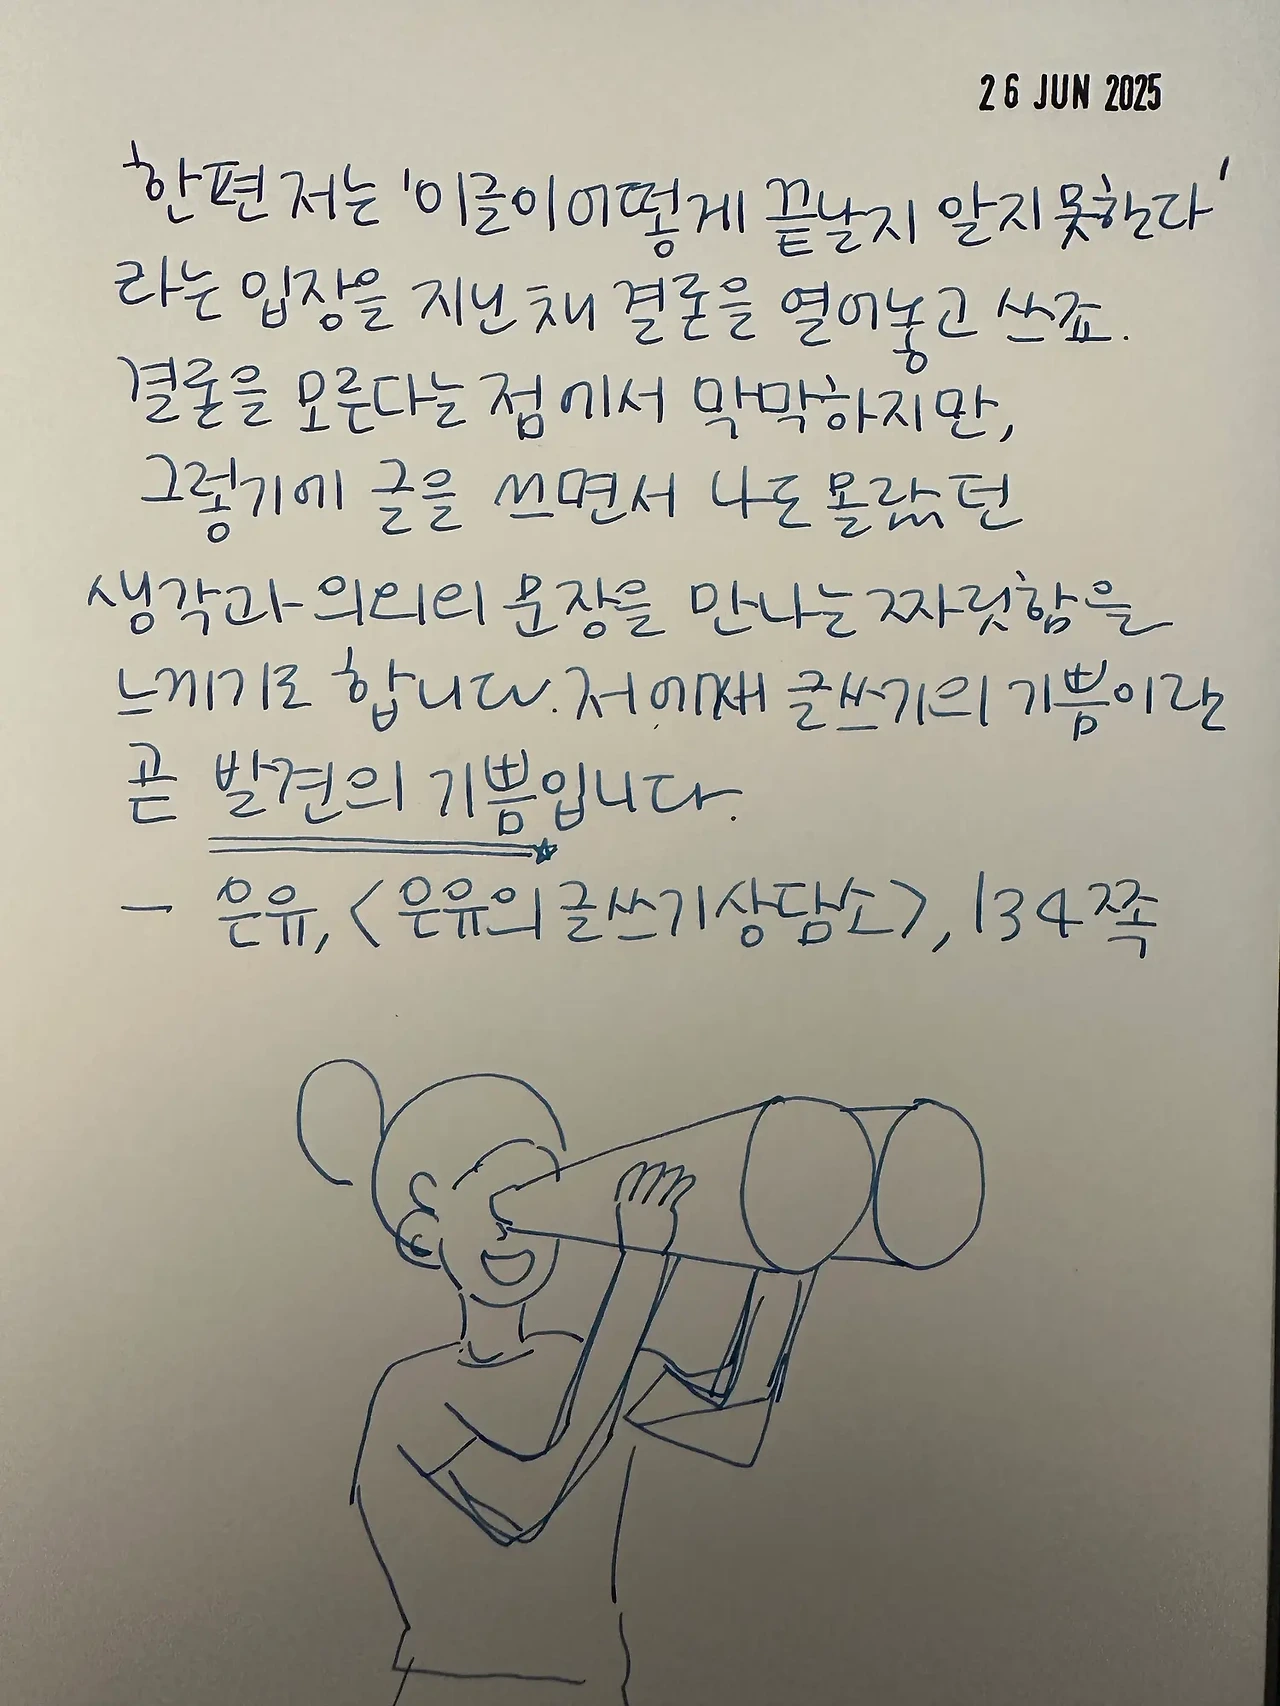 26 JUN 2025
한편 저는 '이글이 어떻게 끝날지 알지 못한다'
라는 입장을 지닌 채 결론을 열어놓고 쓰죠.
결론을 모른다는 점에서 막막하지만,
그렇기에 글을 쓰면서 나도 몰랐던
생각과 의외의 문장을 만나는 짜릿함을
느끼기도 합니다. 저에게 글쓰기의 기쁨이란
곧 발견의 기쁨입니다.
- 은유, <은유의 글쓰기 상담소>, 134쪽